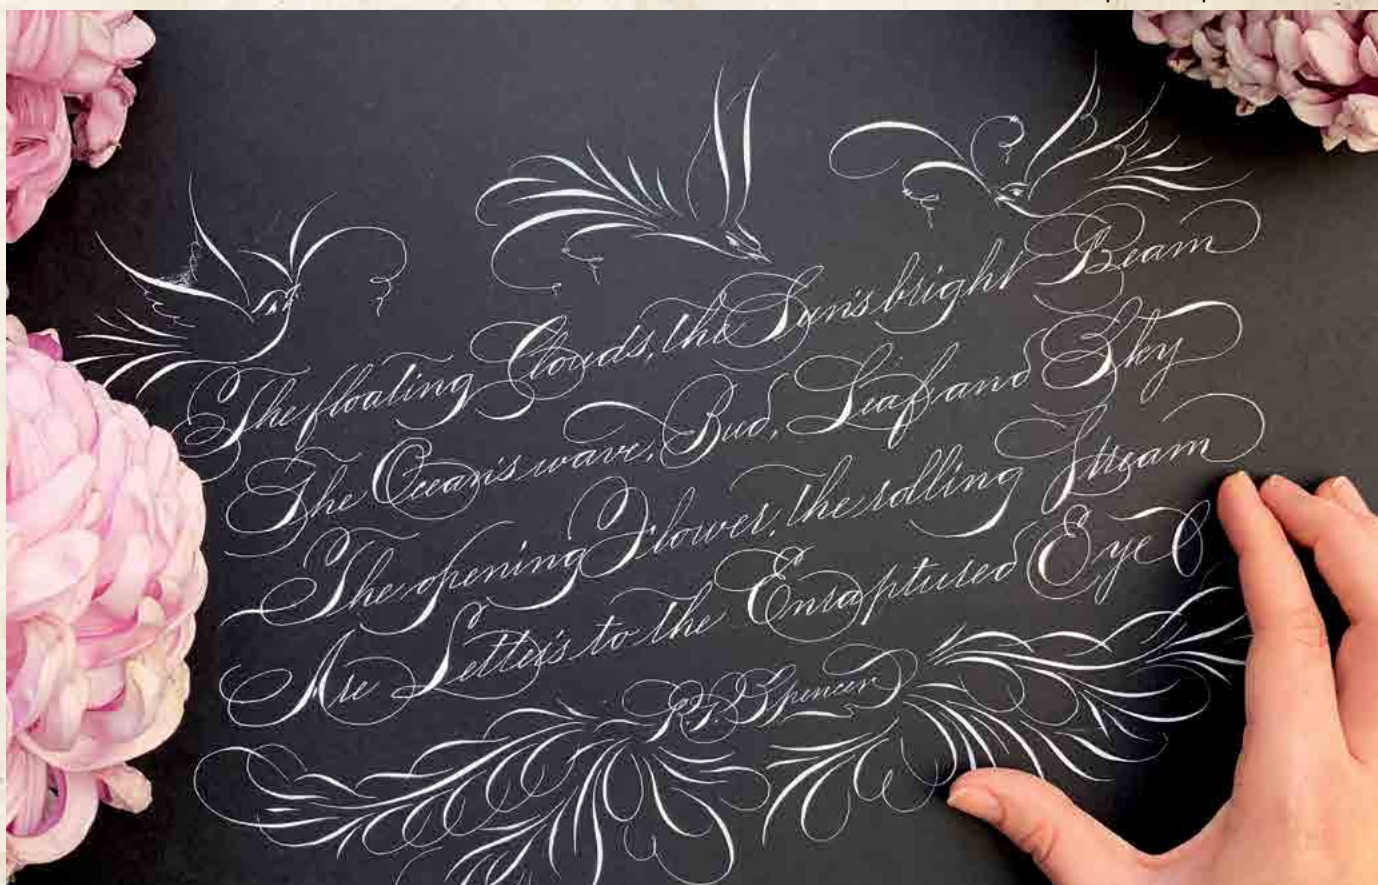 The floating Clouds, the Sun's bright Beam
The Ocean's wave, Bud, Leaf, and Sky
The opening Flower, the rolling Stream
Are Letters to the Enraptured Eye
P.R. Spencer